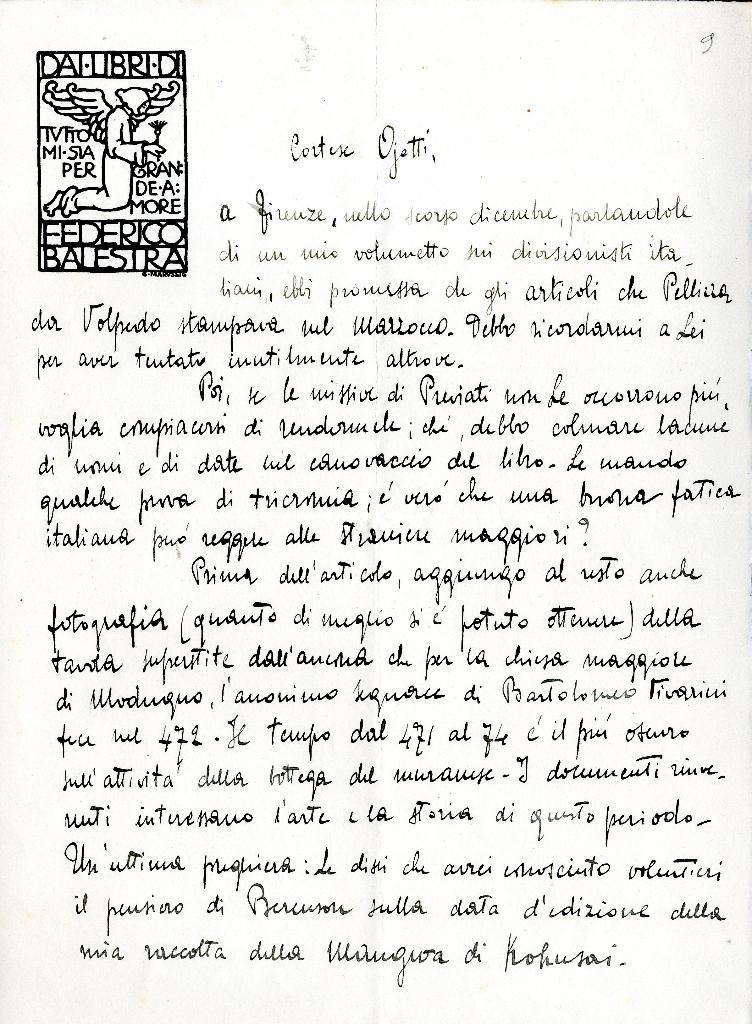 9
DAI·LIBRI·DI
TVTTO
MI·SIA
PER
GRAN=
DE·A=
MORE
FEDERICO
BALESTRA
Cortese Ojetti,
a Firenze, nello scorso dicembre, parlandole
di un mio volumetto sui divisionisti ita-
liani, ebbi promessa de gli articoli che Pellizza
da Volpedo stampava nel Marzocco. Debbo ricordarmi a Lei
per aver tentato inutilmente altrove.
Poi, se le missive di Previati non Le occorrono più,
voglia compiacersi di rendermele; ché, debbo colmare lacune
di nomi e di date nel canovaccio del libro. Le mando
qualche prova di tricromia; é veró che una buona fatica
italiana può reggere alle straniere maggiori?
Prima dell'articolo, aggiungo al resto anche
fotografia (quanto di meglio si é potuto ottenere) della
tavola superstite dall'ancona che per la chiesa maggiore
di Modugno, l'anonimo seguace di Bartolomeo Vivarini
fece nel 472. Il tempo dal 471 al 74 é il più oscuro
sull'attività della bottega del muranese. I documenti rinve-
nuti interessano l'arte e la storia di questo periodo.
Un'ultima preghiera: Le dissi che avrei conosciuto volentieri
il pensiero di Berenson sulla data d'edizione della
mia raccolta della Mangwa di Hokusai.